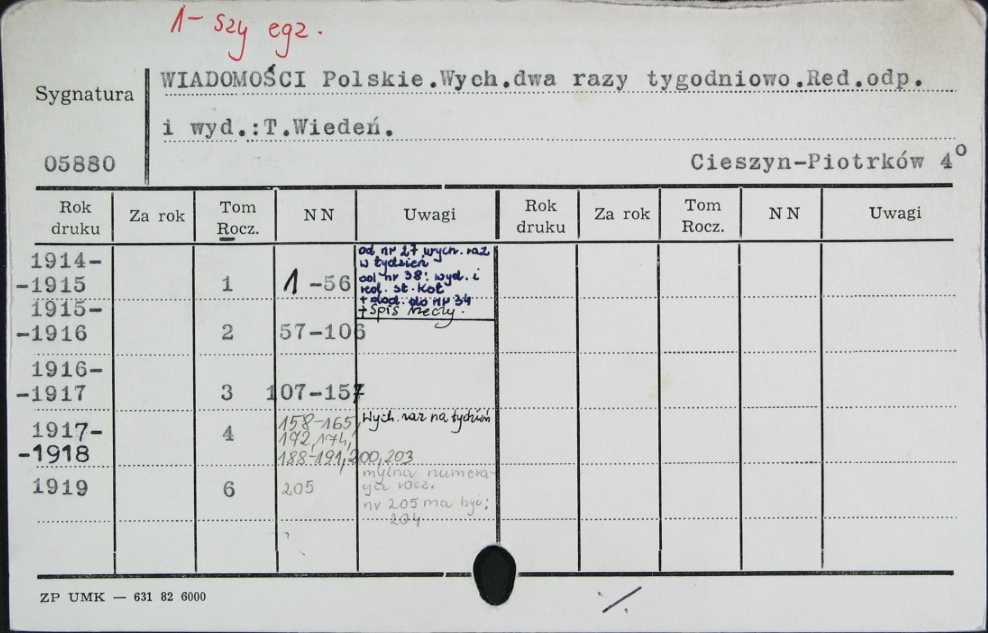 1-szy egz.
WIADOMOŚCI Polskie.Wych.dwa razy tygodniowo.Red.odp.
Sygnatura
i wyd.:T.Wiedeń.
05880 Cieszyn-Piotrków 4º
Rok druku Za rok Tom Rocz. NN Uwagi Rok druku Za rok Tom Rocz. NN Uwagi
1914-
-1915 1 1-56
od nr 27 wych. raz
w tydzień
od nr 38: wyd. i
red. St. Kot
+ dod. do nr 34
+ Spis rzeczy.
1915-
-1916 2 57-106
1916-
-1917 3 107-157
1917-
-1918 4
158-165,
192,174,
188-191,200,203
Wych. raz na tydzień
1919 6 205
mylna numera-
cja rocz.
nr 205 ma być:
204
ZP UMK — 631 82 6000